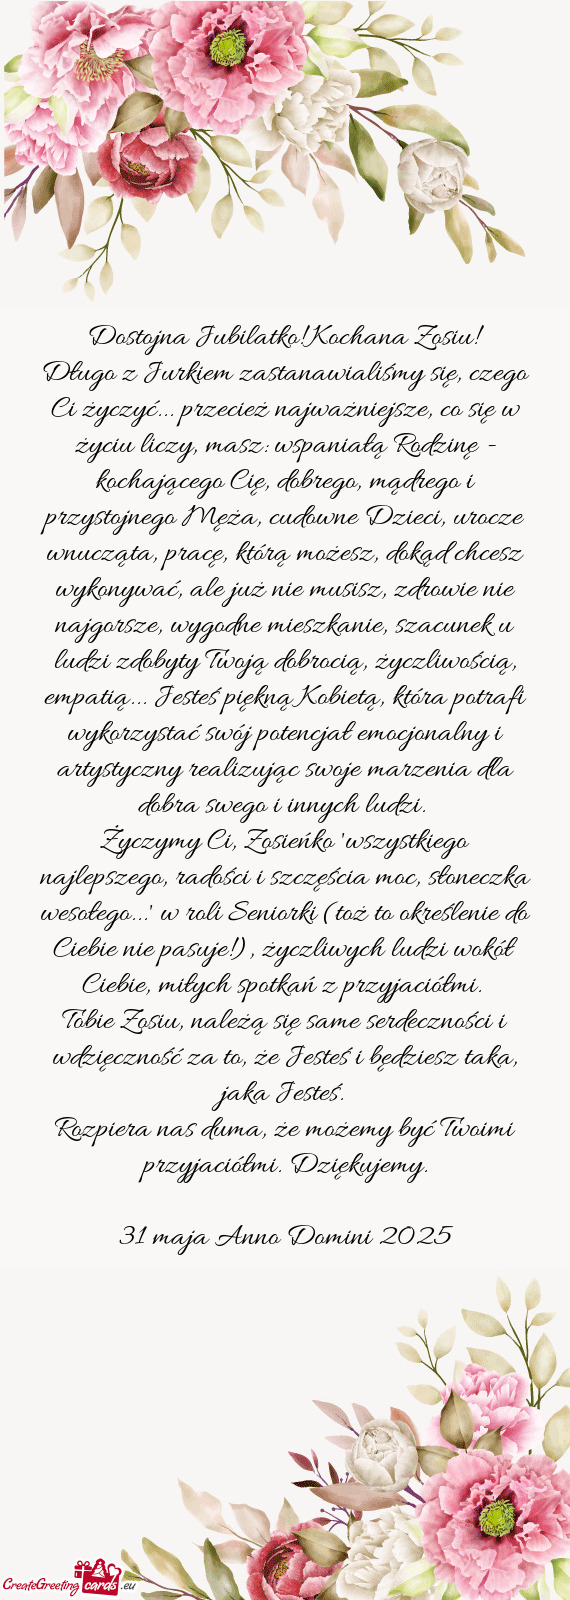 Dostojna Jubilatko!Kochana Zosiu!
Długo z Jurkiem zastanawialiśmy się, czego
Ci życzyć... przecież najważniejsze, co się w
życiu liczy, masz: wspaniałą Rodzinę -
kochającego Cię, dobrego, mądrego i
przystojnego Męża, cudowne Dzieci, urocze
wnuczęta, pracę, którą możesz, dokąd chcesz
wykonywać, ale już nie musisz, zdrowie nie
najgorsze, wygodne mieszkanie, szacunek u
ludzi zdobyty Twoją dobrocią, życzliwością,
empatią... Jesteś piękną Kobietą, która potrafi
wykorzystać swój potencjał emocjonalny i
artystyczny realizując swoje marzenia dla
dobra swego i innych ludzi.
Życzymy Ci, Zosieńko 'wszystkiego
najlepszego, radości i szczęścia moc, słoneczka
wesołego...' w roli Seniorki (toż to określenie do
Ciebie nie pasuje!) , życzliwych ludzi wokół
Ciebie, miłych spotkań z przyjaciółmi.
Tobie Zosiu, należą się same serdeczności i
wdzięczność za to, że Jesteś i będziesz taka,
jaka Jesteś.
Rozpiera nas duma, że możemy być Twoimi
przyjaciółmi. Dziękujemy.
31 maja Anno Domini 2025
CreateGreeting cards .eu